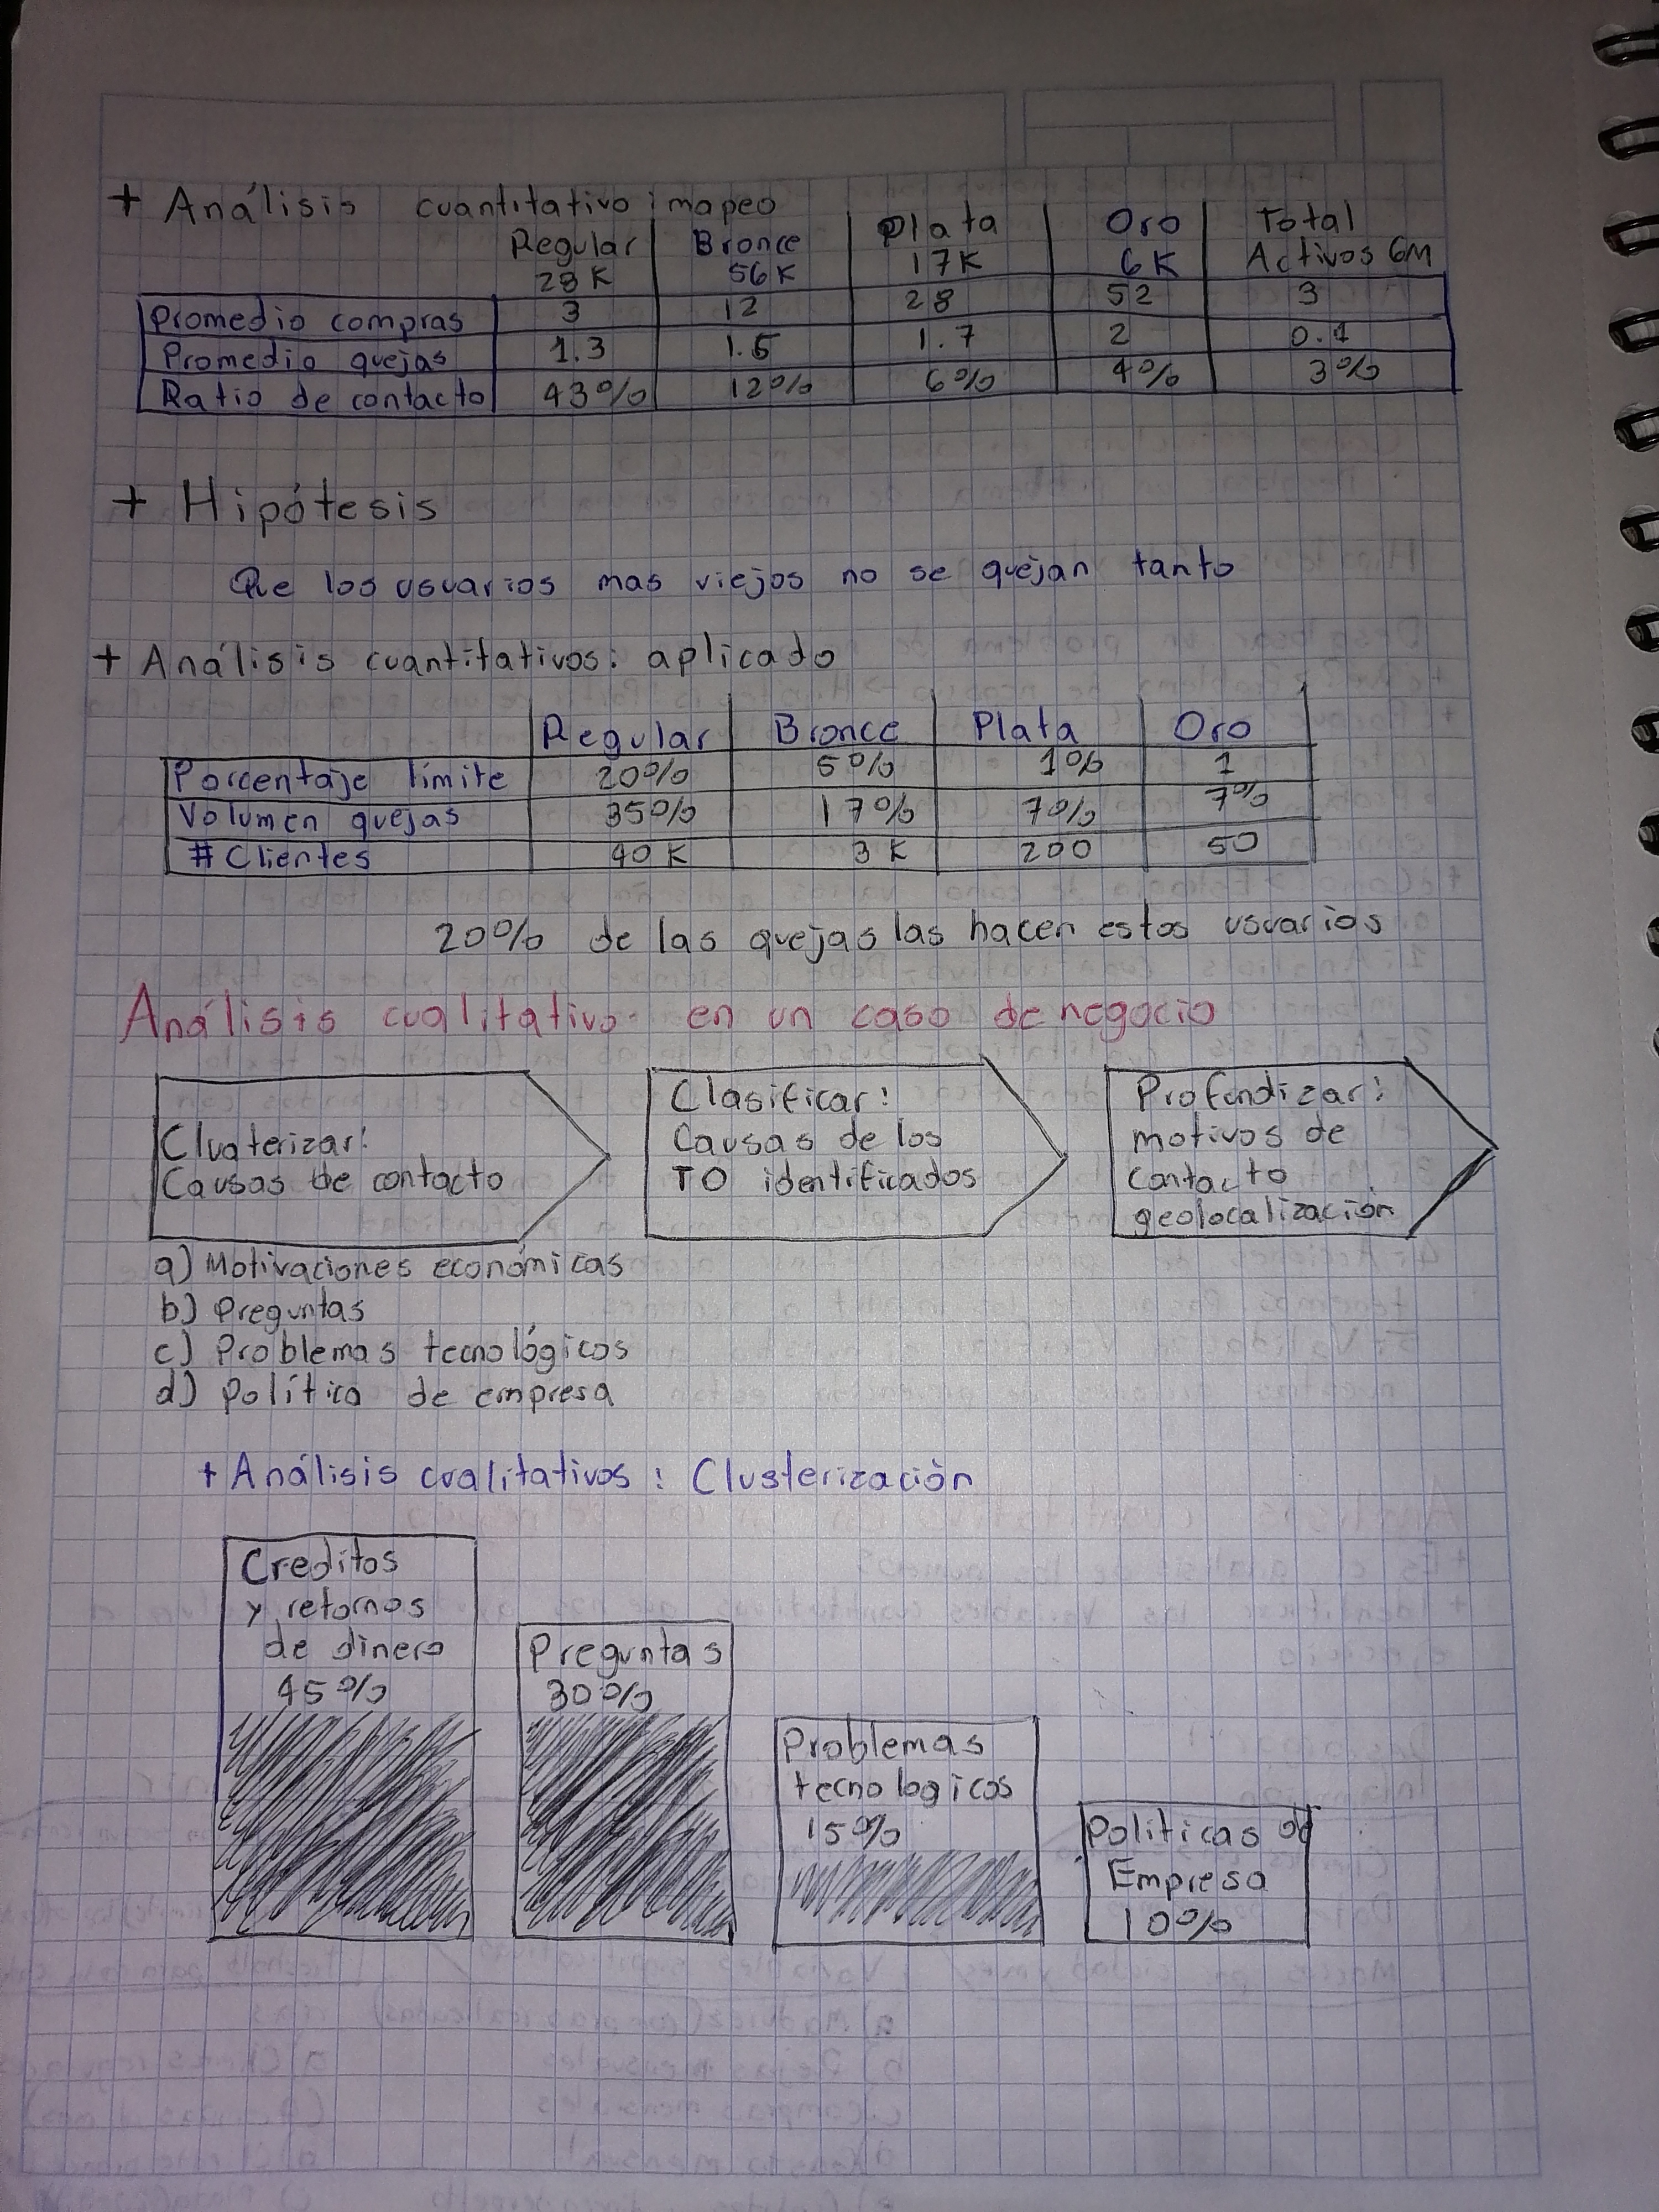 + Análisis cuantitativo: mapeo
Regular Bronce Plata Oro Total
28K 56K 17K 6K Activos 6M
Promedio compras 3 12 28 52 3
Promedio quejas 1.3 1.5 1.7 2 0.1
Ratio de contacto 43% 12% 6% 4% 3%
+ Hipótesis
Que los usuarios mas viejos no se quejan tanto
+ Análisis cuantitativos: aplicado
Regular Bronce Plata Oro
Porcentaje límite 20% 5% 1% 1
Volumen quejas 35% 17% 7% 7%
# Clientes 40K 3K 200 50
20% de las quejas las hacen estos usuarios
Análisis cualitativo en un caso de negocio
Cluaterizar:
Causas de contacto
Clasificar:
Causas de los
TO identificados
Profundizar:
motivos de
contacto
geolocalización
a) Motivaciones económicas
b) Preguntas
c) Problemas tecnológicos
d) Política de empresa
+ Análisis cualitativos: Clusterización
Creditos
y retornos
de dinero
45%
Preguntas
30%
Problemas
tecnologicos
15%
Politicas de
Empresa
10%